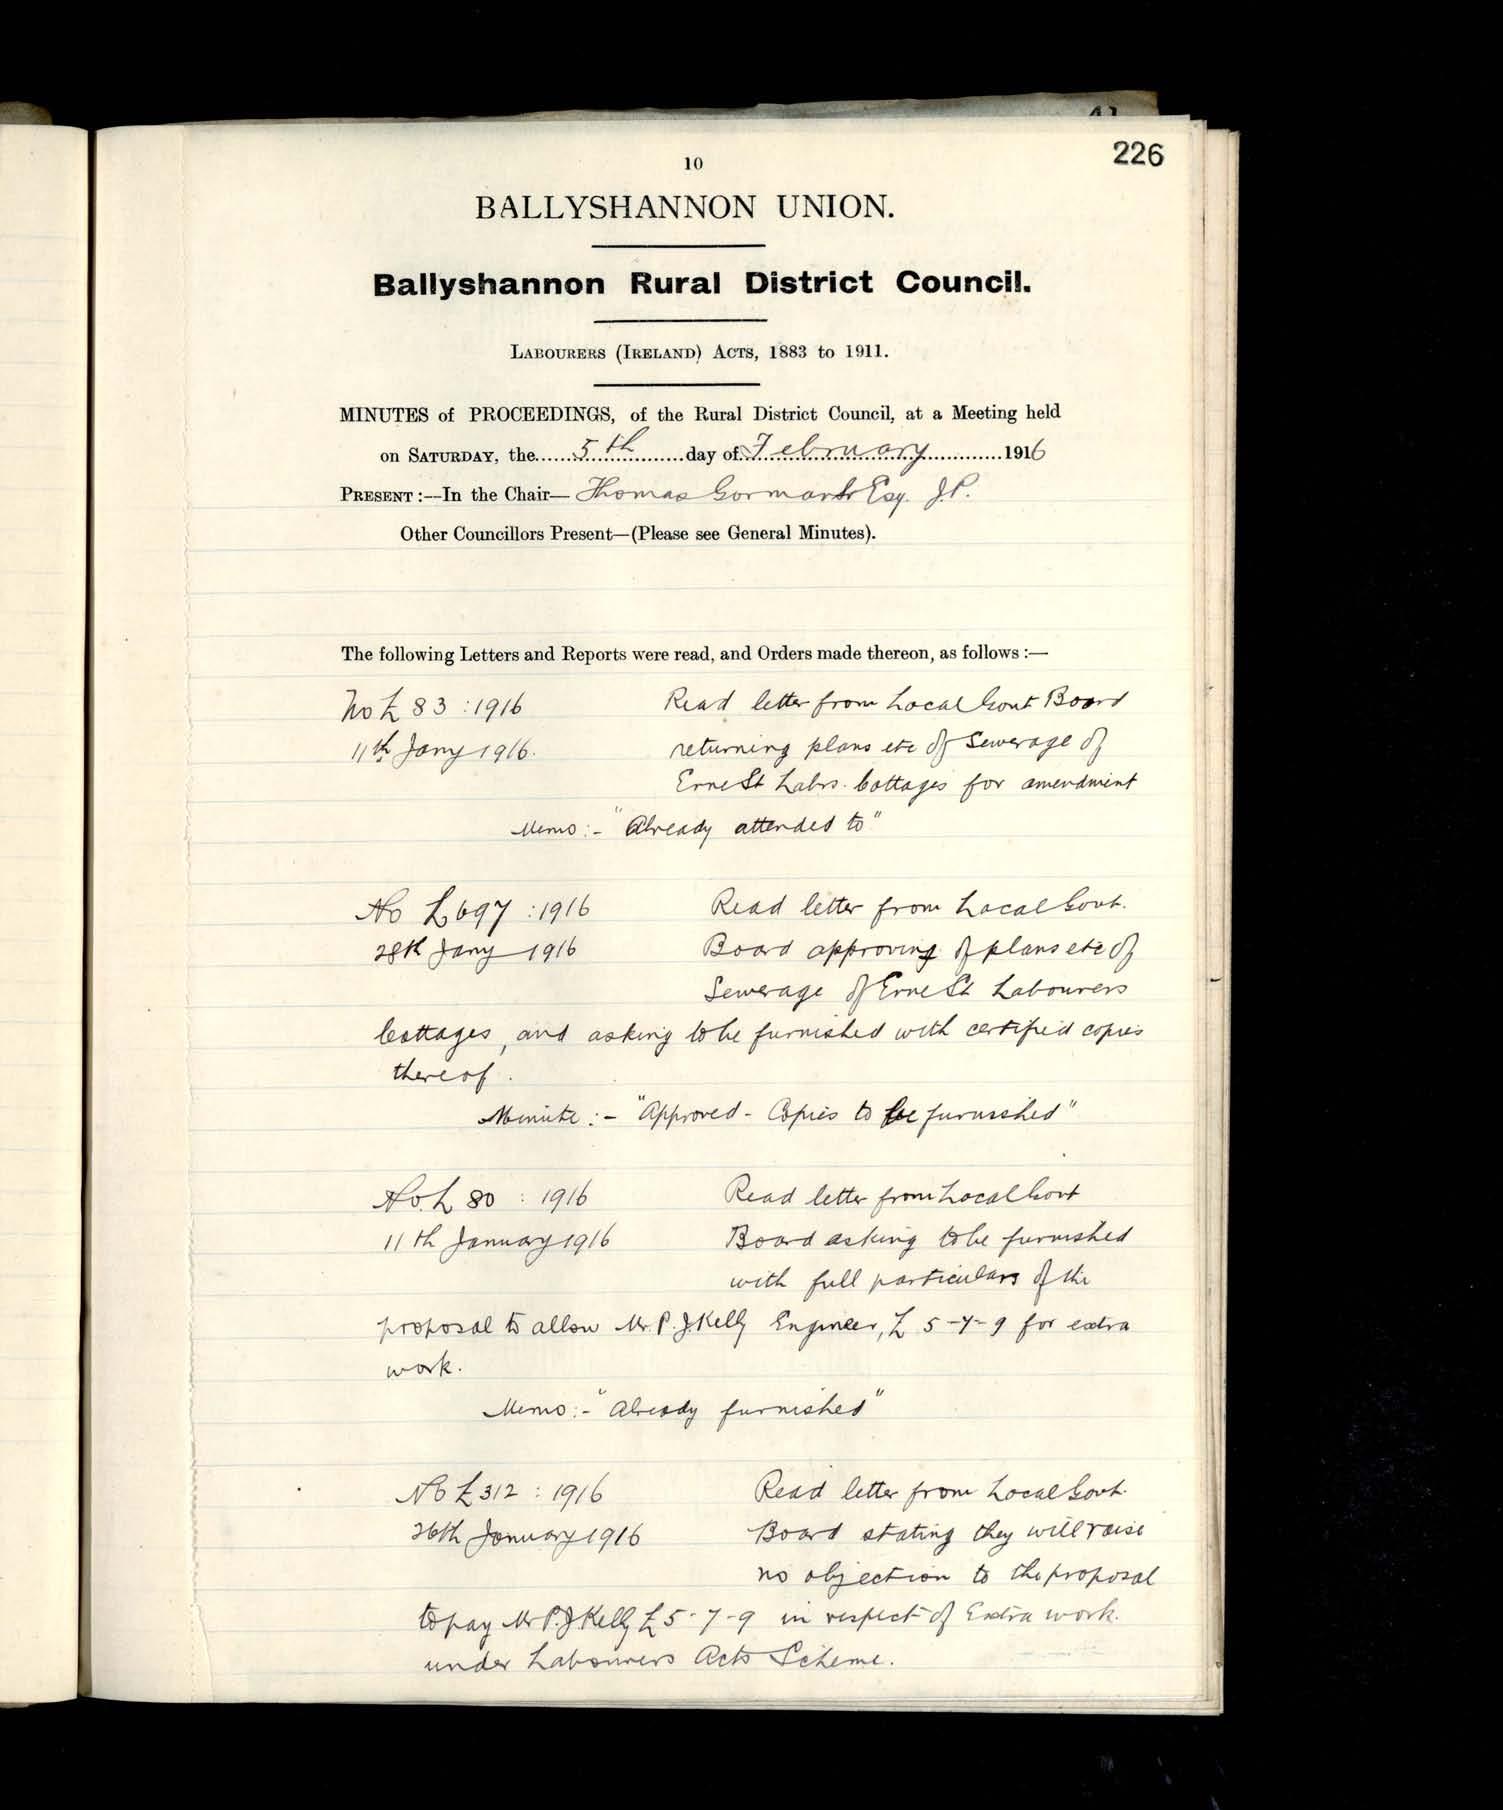 226
10
BALLYSHANNON UNION.
Ballyshannon Rural District Council.
LABOURERS (IRELAND) ACTS, 1883 to 1911.
MINUTES of PROCEEDINGS, of the Rural District Council, at a Meeting held
on SATURDAY, the......5th......day of February............1916
PRESENT :--In the Chair— Thomas Gorman Esq. J.P.
Other Councillors Present—(Please see General Minutes).
The following Letters and Reports were read, and Orders made thereon, as follows :—
No L 83 : 1916 Read letter from Local Govt Board
11th Jany 1916. returning plans etc of Sewerage of
Erne St Labrs. Cottages for amendment
Memo :- "Already attended to"
No L 697 : 1916 Read letter from Local Govt.
28th Jany 1916 Board approving of plans etc of
Sewerage of Erne St Labourers
Cottages, and asking to be furnished with certified copies
thereof.
Minute :- "Approved - Copies to be furnished"
No. L 80 : 1916 Read letter from Local Govt
11th January 1916 Board asking to be furnished
with full particulars of the
proposal to allow Mr. P. J Kelly Engineer, £ 5-7-9 for extra
work.
Memo :- "Already furnished"
No L 312 : 1916 Read letter from Local Govt.
26th January 1916 Board stating they will raise
no objection to the proposal
to pay Mr P. J Kelly £5-7-9 in respect of Extra work.
under Labourers Acts Scheme.